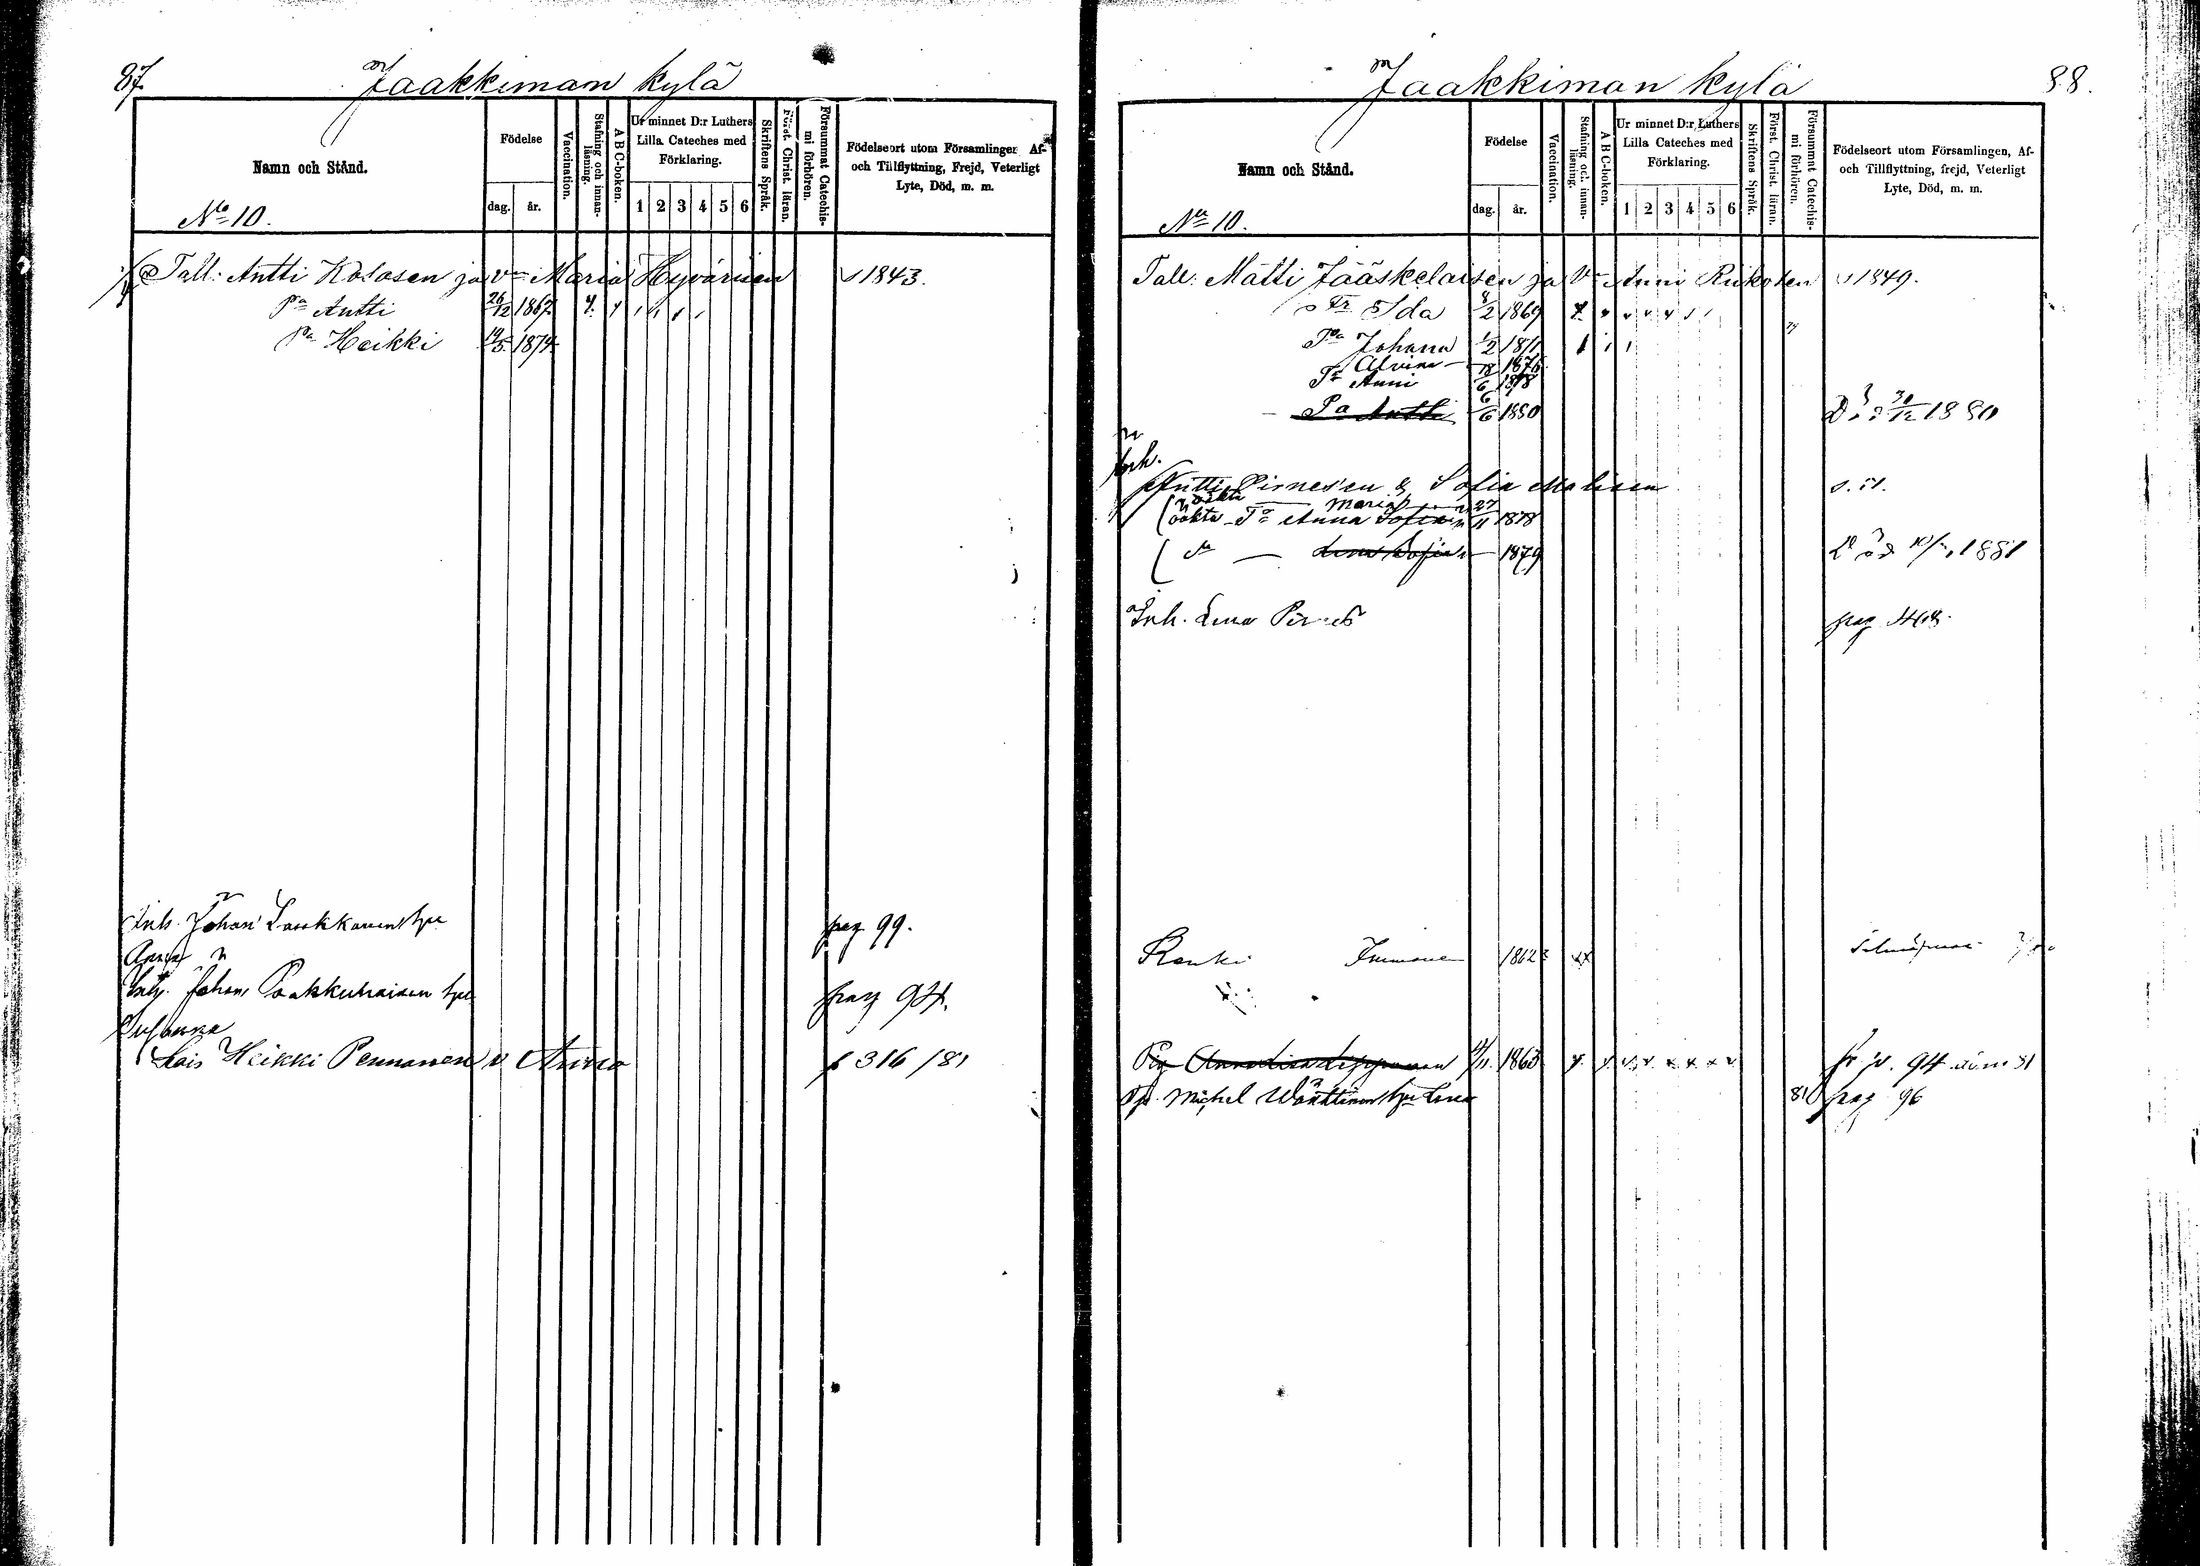 87.
Jaakkiman kylä
Namn och Stånd.
No 10.
Födelse
dag. år.
Vaccination.
Stafning och innan-läsning.
A B C-boken.
Ur minnet D:r Luthers
Lilla Cateches med
Förklaring.
1 2 3 4 5 6
Skriftens Språk.
Först. Christ. läran.
Försummat Catechis-mi förhören.
Födelseort utom Församlingen Af-
och Tillflyttning, Frejd, Veterligt
Lyte, Död, m. m.
Tall: Antti Kolosen ja vmo Maria Hyvärisen 1843.
Pa Antti 26/12 1867
Pa Heikki 14/5 1874
Inh. Johan hu pag 99.
Anna
Johan Paakkunainen hu pag 94.
Susanna
Lois Heikki Pennanen v Anna p 316/81
88.
Jaakkiman kylä
Namn och Stånd.
No 10.
Födelse
dag. år.
Vaccination.
Stafning och innan-läsning.
A B C-boken.
Ur minnet D:r Luthers
Lilla Cateches med
Förklaring.
1 2 3 4 5 6
Skriftens Språk.
Först. Christ. läran.
Försummat Catechis-mi förhören.
Födelseort utom Församlingen, Af-
och Tillflyttning, frejd, Veterligt
Lyte, Död, m. m.
Tall: Matti Jääskelaisen ja Vmo Anni Riikosen 1849.
Tr Ida 8/2 1869
Pa Johann 1/2 1871
Alvina 1876
Tr Anni 1878
Pa Antti 6/6 1880 Död 30/12 1880
Inh.
Antti Pirnesen & Sofia
oäkta Maria 27
oäkta Tr Anna Sofia 11 1878
Lena Sofia 1879 Död 1881
Inh. Lena Pirnes pag
Renki Immonen 1862
Pig 1863 fr p. 94
Michel hu Lena 81 pag 96